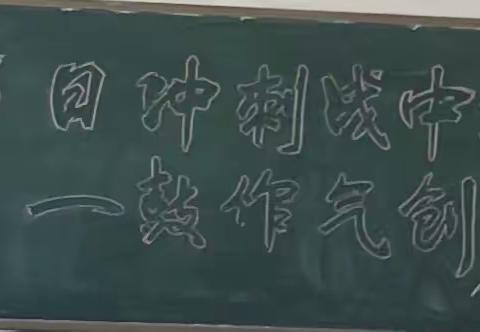 日冲刺战中
一鼓作气创